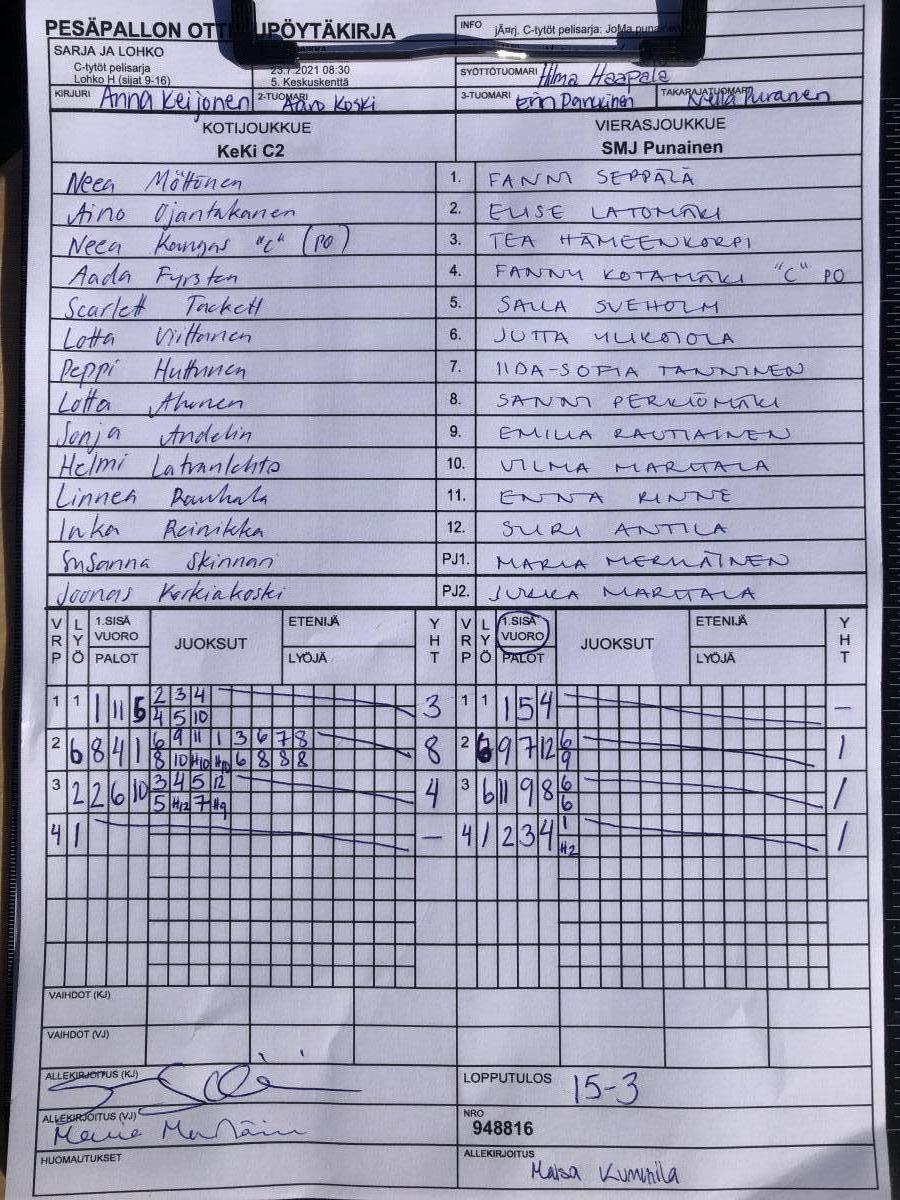 PESÄPALLON OTT UPÖYTÄKIRJA
INFO jÄ¤rj. C-tytöt pelisarja: JoMa puna
SARJA JA LOHKO
C-tytöt pelisarja
Lohko H (sijat 9-16)
23.7.2021 08:30
5. Keskuskenttä
SYÖTTÖTUOMARI Hilma Haapala
KIRJURI Anna Keijonen 2-TUOMARI Aaro Koski 3-TUOMARI TAKARAJATUOMARI Nella Puranen
KOTIJOUKKUE VIERASJOUKKUE
KeKi C2 SMJ Punainen
Neea Möttönen 1. FANNI SEPPÄLÄ
Aino Ojantakanen 2. ELISE LATOMÄKI
Neea Kangas "C" (PO) 3. TEA HÄMEENKORPI
Aada Fyrsten 4. FANNY KOTAMÄKI "C" PO
Scarlett Tackett 5. SALLA SVEHOLM
Lotta Viittanen 6. JUTTA YLIKOJOLA
Peppi Huttunen 7. IIDA-SOFIA TANNINEN
Lotta Ahonen 8. SANNI PERKIÖMÄKI
Sonja Andelin 9. EMILIA RAUTIAINEN
Helmi Latvanlehto 10. VILMA MARTTALA
Linnea Rauhala 11. ENNA RINNE
Inka Reinikka 12. SUURI ANTILA
Susanna Skinnari PJ1. MARIA MERKÄINEN
Joonas Korkiakoski PJ2. JUKKA MARTTALA
VRP LYÖ 1.SISÄ VUORO PALOT JUOKSUT ETENIJÄ LYÖJÄ YHT VRP LYÖ 1.SISÄ VUORO PALOT JUOKSUT ETENIJÄ LYÖJÄ YHT
1 1 1 11 5 2 3 4 3 1 1 1 5 4 –
4 5 10
2 6 8 4 1 6 9 11 1 3 6 7 8 8 2 6 9 7 12 6 1
8 10 H10 H10 6 8 8 8 9
3 2 2 6 10 3 4 5 12 4 3 6 11 9 8 6 1
5 H12 7 H9 6
4 1 – 4 1 2 3 4 1 1
H2
VAIHDOT (KJ)
VAIHDOT (VJ)
ALLEKIRJOITUS (KJ) LOPPUTULOS 15-3
ALLEKIRJOITUS (VJ) NRO
948816
HUOMAUTUKSET ALLEKIRJOITUS
Maisa Kummila